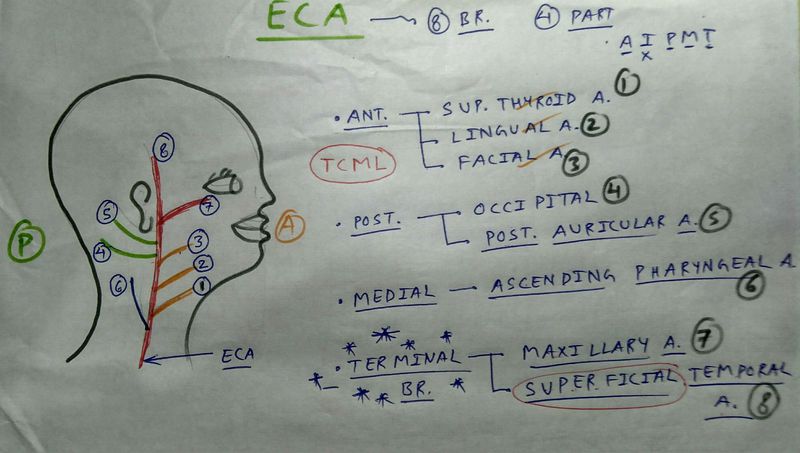 ECA → 8 BR. 4 PART
• A I P M T
x
• ANT. SUP. THYROID A. 1
LINGUAL A. 2
TCML
FACIAL A 3
• POST. OCCIPITAL 4
POST. AURICULAR A. 5
• MEDIAL — ASCENDING PHARYNGEAL A
6
• TERMINAL MAXILLARY A. 7
BR. SUPERFICIAL TEMPORAL
A. 8
8
5 7
P 4 3 A
2
6 1
ECA